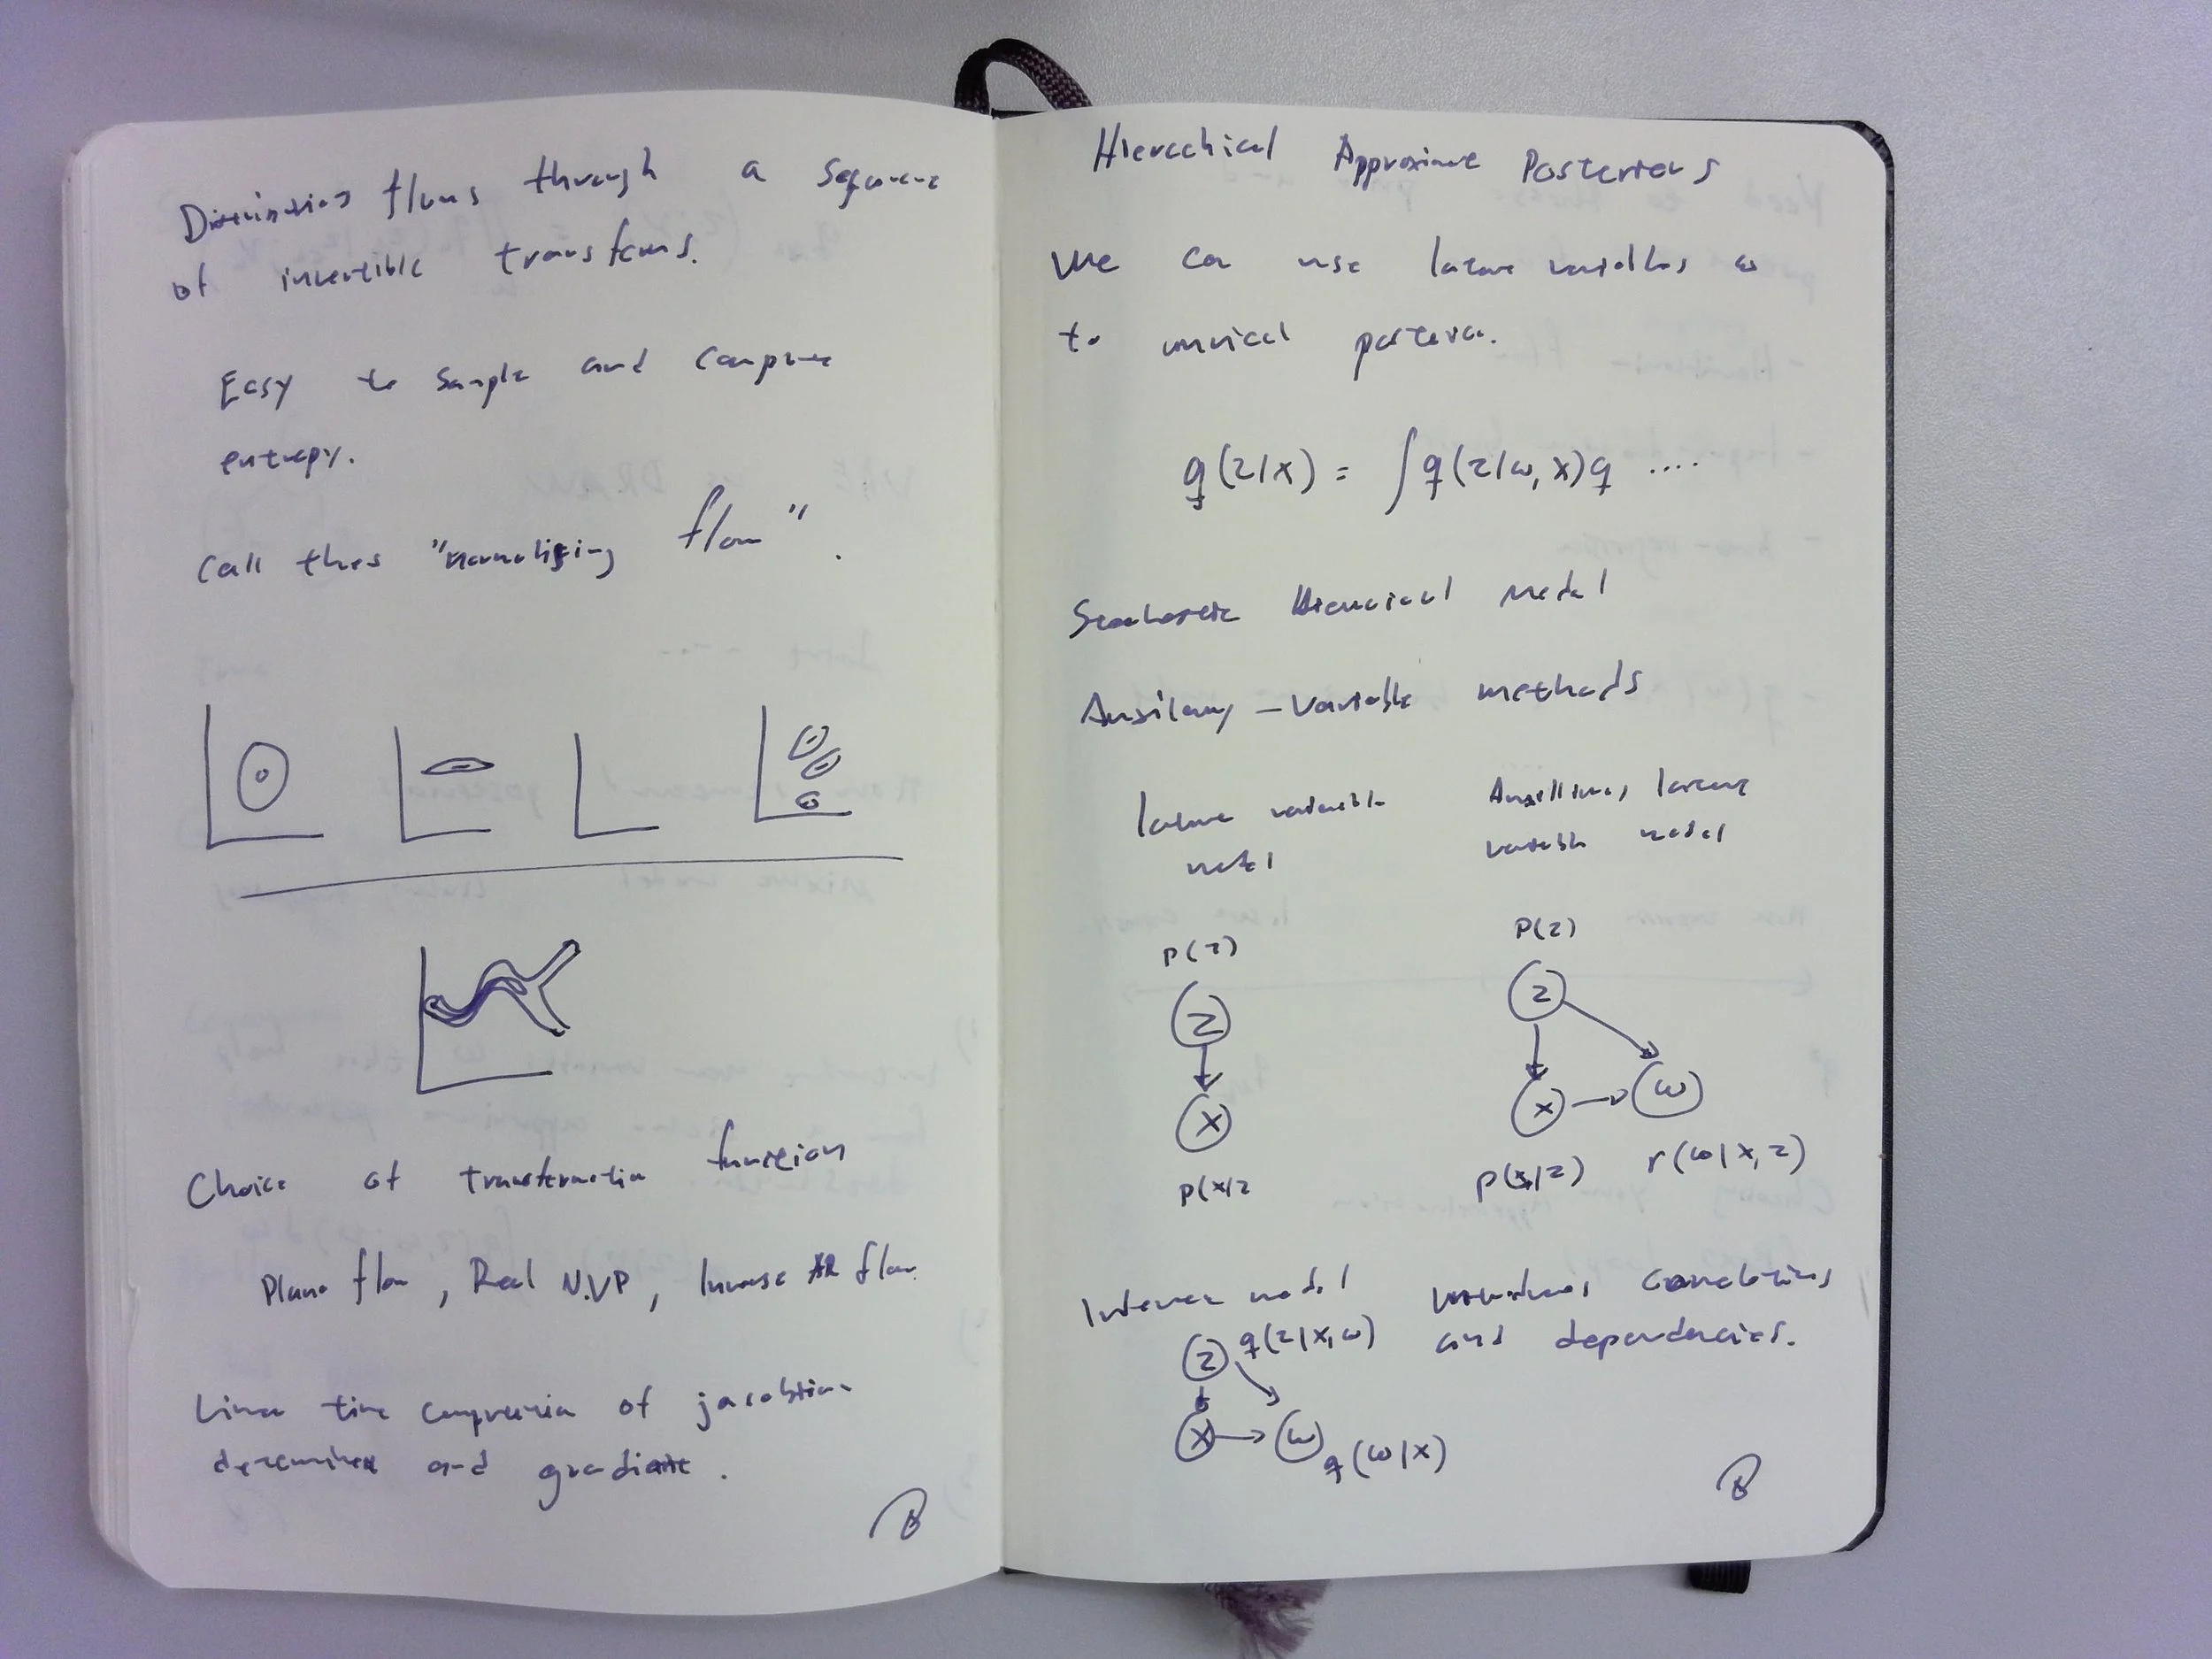 Distribution flows through a sequence
of invertible transforms.
Easy to sample and compute
entropy.
Call this "normalizing flow".
Choice of transformation function
Planar flow, Real N.VP, Inverse AR flow.
Linear time computation of jacobian
determinant and gradient.
Hierachical Approximate Posteriors
We can use latent variables ω
to posterior.
q(z|x) = ∫q(z|ω,x)q ....
Stochastic Hierarcical Model
Auxilary-variable methods
latent variable
model
Auxilliary latent
variable model
P(z)
z
x
p(x|z
P(z)
z
x
ω
p(x|z)
r(ω|x,z)
Inference model
introduces correlations
and dependencies.
z
q(z|x,ω)
x
ω
q(ω|x)